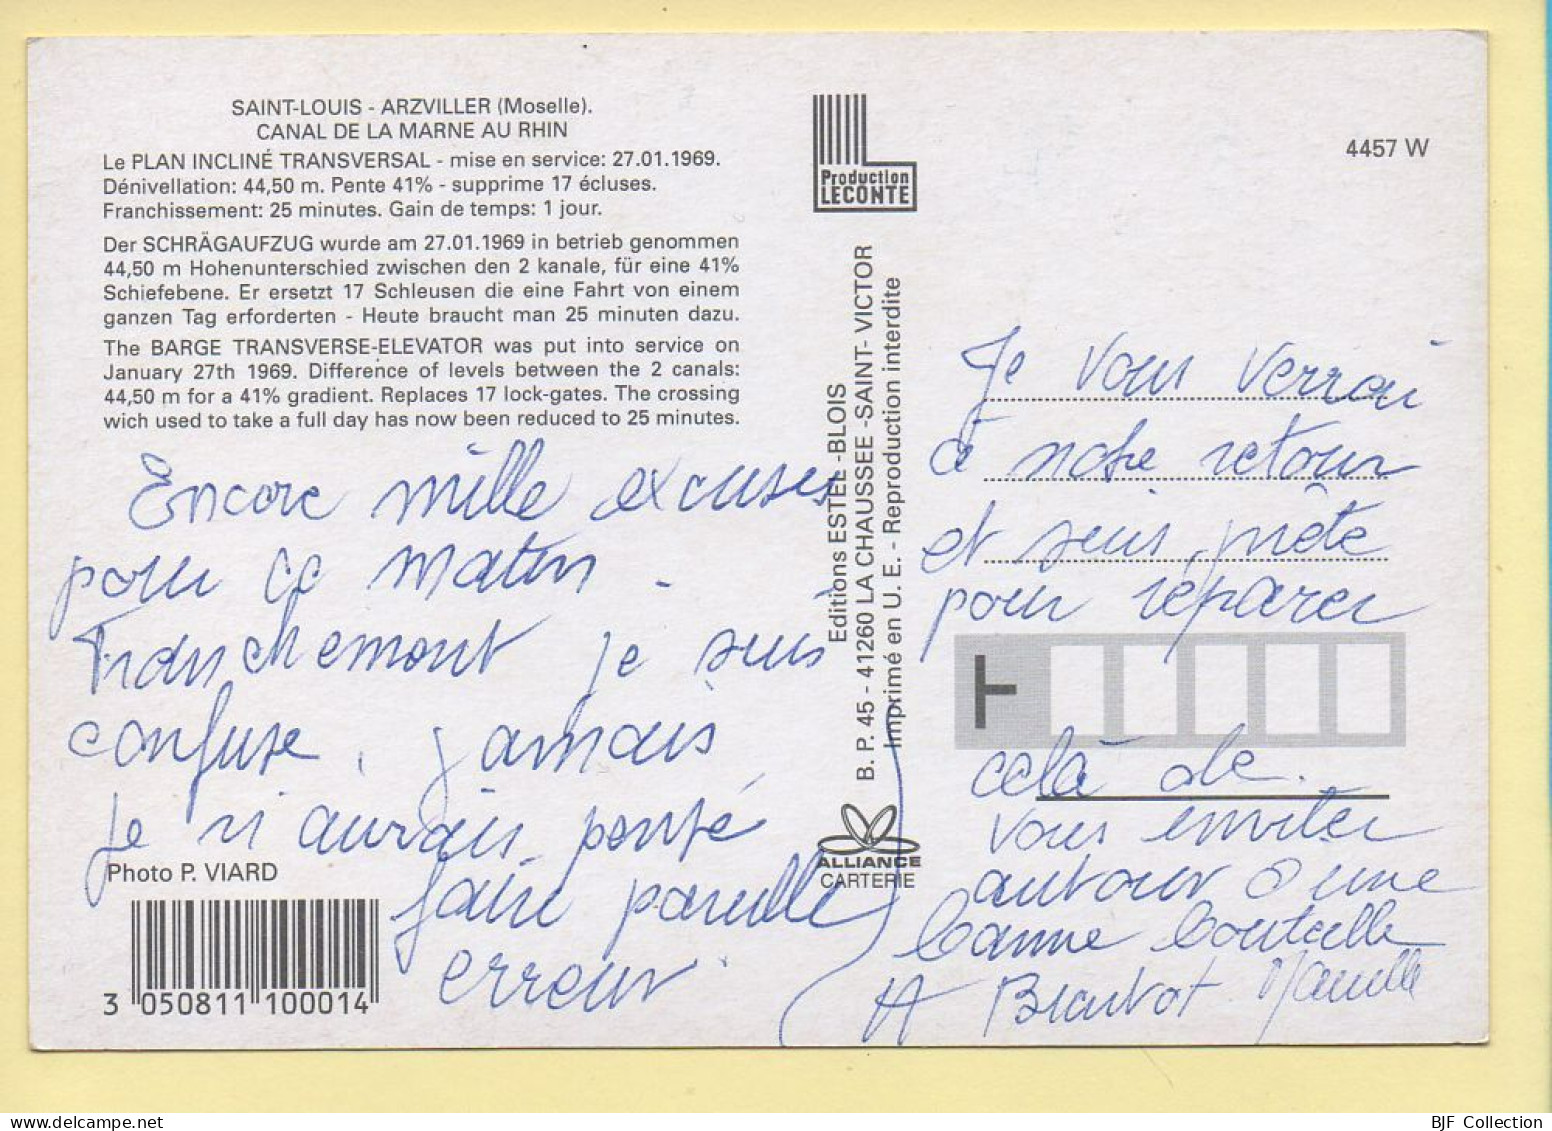 SAINT-LOUIS - ARZVILLER (Moselle).
CANAL DE LA MARNE AU RHIN
Le PLAN INCLINÉ TRANSVERSAL - mise en service: 27.01.1969.
Dénivellation: 44,50 m. Pente 41% - supprime 17 écluses.
Franchissement: 25 minutes. Gain de temps: 1 jour.
Der SCHRÄGAUFZUG wurde am 27.01.1969 in betrieb genommen
44,50 m Hohenunterschied zwischen den 2 kanale, für eine 41%
Schiefebene. Er ersetzt 17 Schleusen die eine Fahrt von einem
ganzen Tag erforderten - Heute braucht man 25 minuten dazu.
The BARGE TRANSVERSE-ELEVATOR was put into service on
January 27th 1969. Difference of levels between the 2 canals:
44,50 m for a 41% gradient. Replaces 17 lock-gates. The crossing
wich used to take a full day has now been reduced to 25 minutes.
Encore mille excuses
pour ce matin.
Franchement je suis
confuse, jamais
je n'aurais pensé
faire pareille
erreur.
Photo P. VIARD
3 050811 100014
Production
LECONTE
Editions ESTEL -BLOIS
B. P. 45 - 41260 LA CHAUSSEE -SAINT- VICTOR
Imprimé en U. E. - Reproduction interdite
ALLIANCE
CARTERIE
4457 W
Je vous verrai
à notre retour
et suis prête
pour réparer
celà de
vous inviter
autour d'une
bonne bouteille
A
BJF Collection